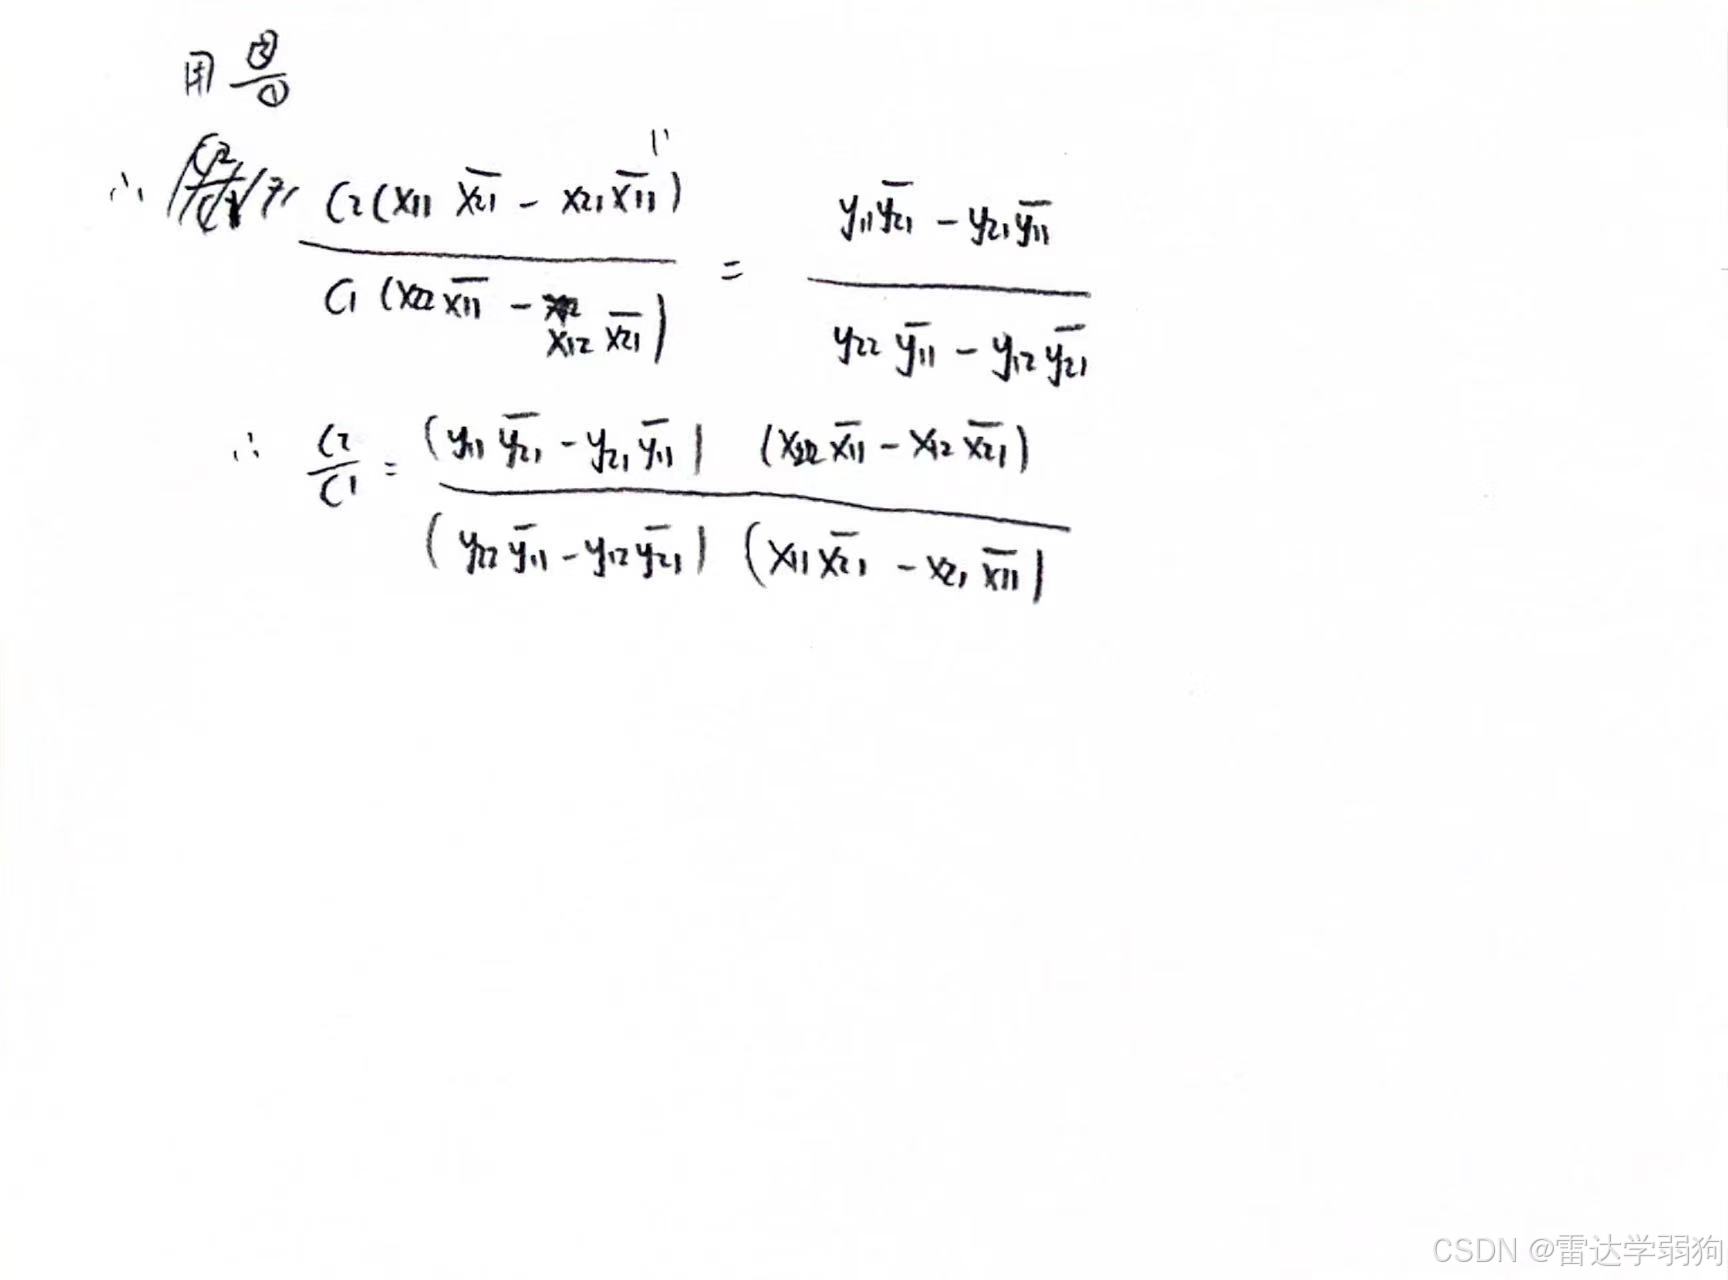 用 ②/①
∴ C2(x11 x̅2̅1̅ - x21 x̅1̅1̅) / C1(x22 x̅1̅1̅ - x12 x̅2̅1̅) = (y11 y̅2̅1̅ - y21 y̅1̅1̅) / (y22 y̅1̅1̅ - y12 y̅2̅1̅)
∴ C2/C1 = (y11 y̅2̅1̅ - y21 y̅1̅1̅) (x22 x̅1̅1̅ - x12 x̅2̅1̅) / (y22 y̅1̅1̅ - y12 y̅2̅1̅) (x11 x̅2̅1̅ - x21 x̅1̅1̅)
CSDN @雷达学弱狗